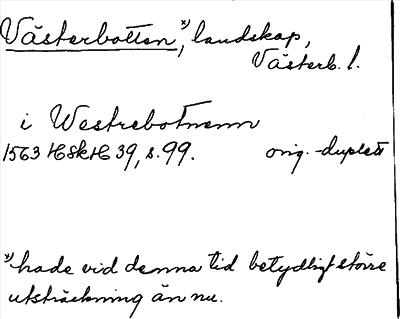 Västerbotten, *) landskap,
Västerb. l.
i Westrebotnenn
1563 HSkH 39, s. 99. orig.-duplett
*) hade vid denna tid betydligt större
utsträckning än nu.